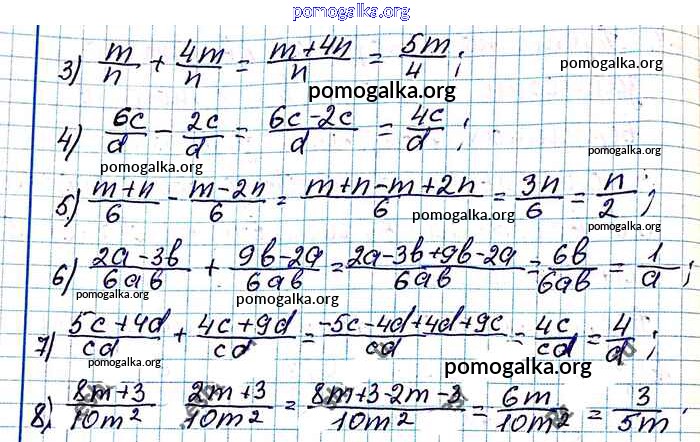 pomogalka.org
3) m/n + 4m/n = m+4n/n = 5m/4 ;
pomogalka.org
pomogalka.org
pomogalka.org
4) 6c/d - 2c/d = 6c-2c/d = 4c/d ;
pomogalka.org
pomogalka.org
5) m+n/6 - m-2n/6 = m+n-m+2n/6 = 3n/6 = n/2 ;
pomogalka.org
6) 2a-3b/6ab + 9b-2a/6ab = 2a-3b+9b-2a/6ab = 6b/6ab = 1/a ;
pomogalka.org
pomogalka.org
7) 5c+4d/cd + 4c+9d/cd = -5c-4d+4d+9c/cd = 4c/cd = 4/d ;
pomogalka.org
pomogalka.org
8) 8m+3/10m² 2m+3/10m² = 8m+3-2m-3/10m² = 6m/10m² = 3/5m .